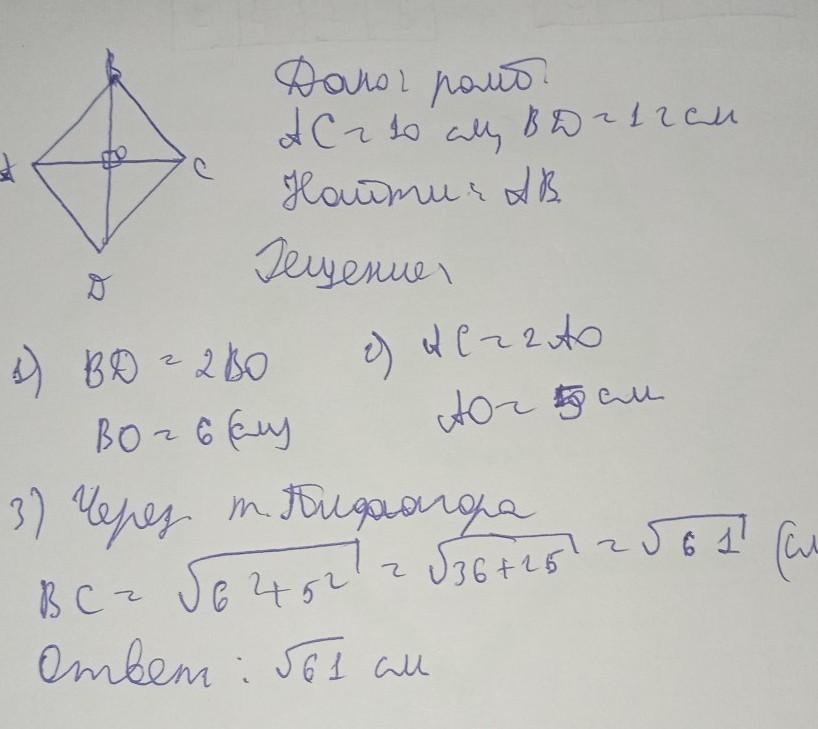 B
Дано: ромб
AC = 10 см, BD = 12 см
A
O
C
Найти: AB
D
Решение:
1) BD = 2BO
2) AC = 2AO
BO = 6 (см)
AO = 5 см
3) Через т. Пифагора
BC = √6²+5² = √36+25 = √61 (см
Ответ: √61 см